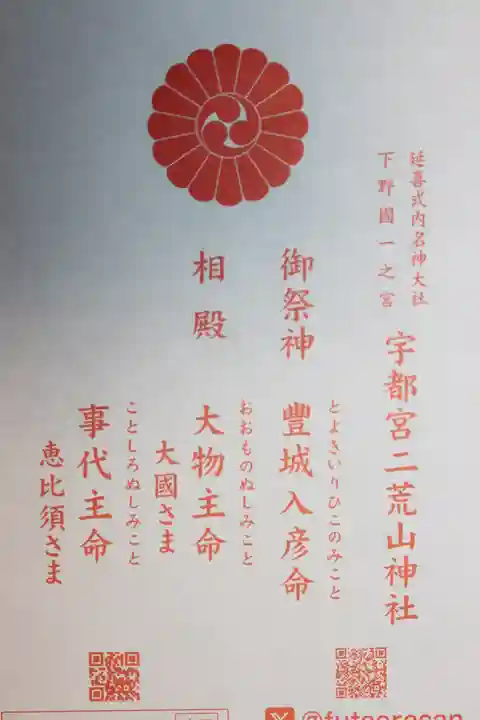 延喜式内名神大社
下野國一之宮
宇都宮二荒山神社
御祭神
豐城入彦命
とよきいりひこのみこと
相殿
大物主命
おおものぬしみこと
大國さま
事代主命
ことしろぬしみこと
恵比須さま